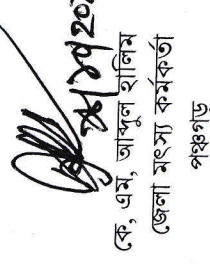 কে, এম, আব্দুল হালিম
জেলা মৎস্য কর্মকর্তা
পঞ্চগড়